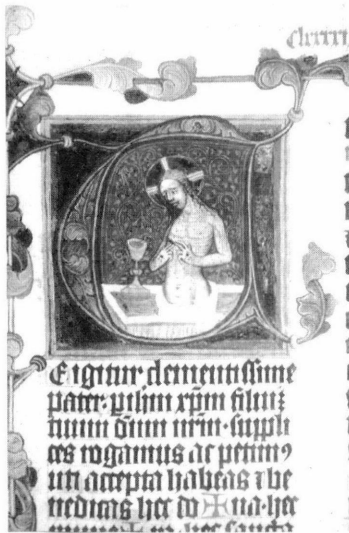 E igitur clementissime
pater· p ihm xpm filiuz
tuum dnm nrm· suppli
ces rogamus ac petim9
uti accepta habeas ⁊ be
nedicas hec do✠na· hec
munera✠ · hec sancta